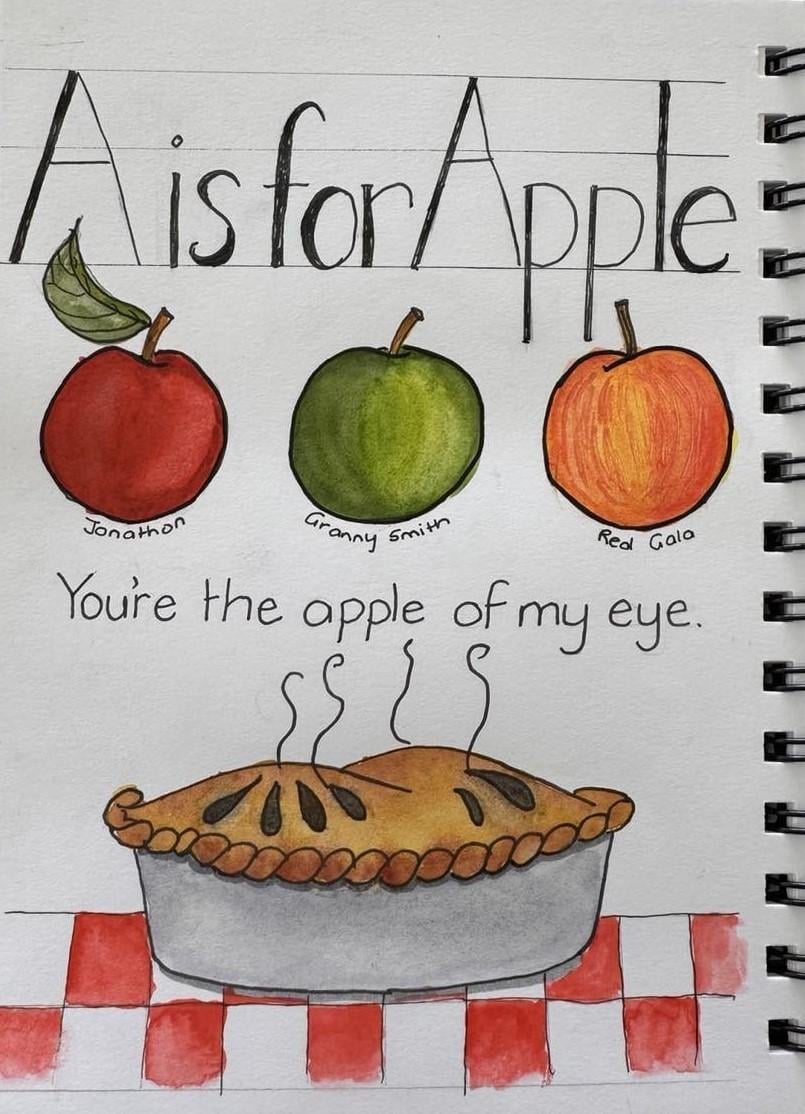 A is for Apple
Jonathon
Granny Smith
Red Gala
You're the apple of my eye.